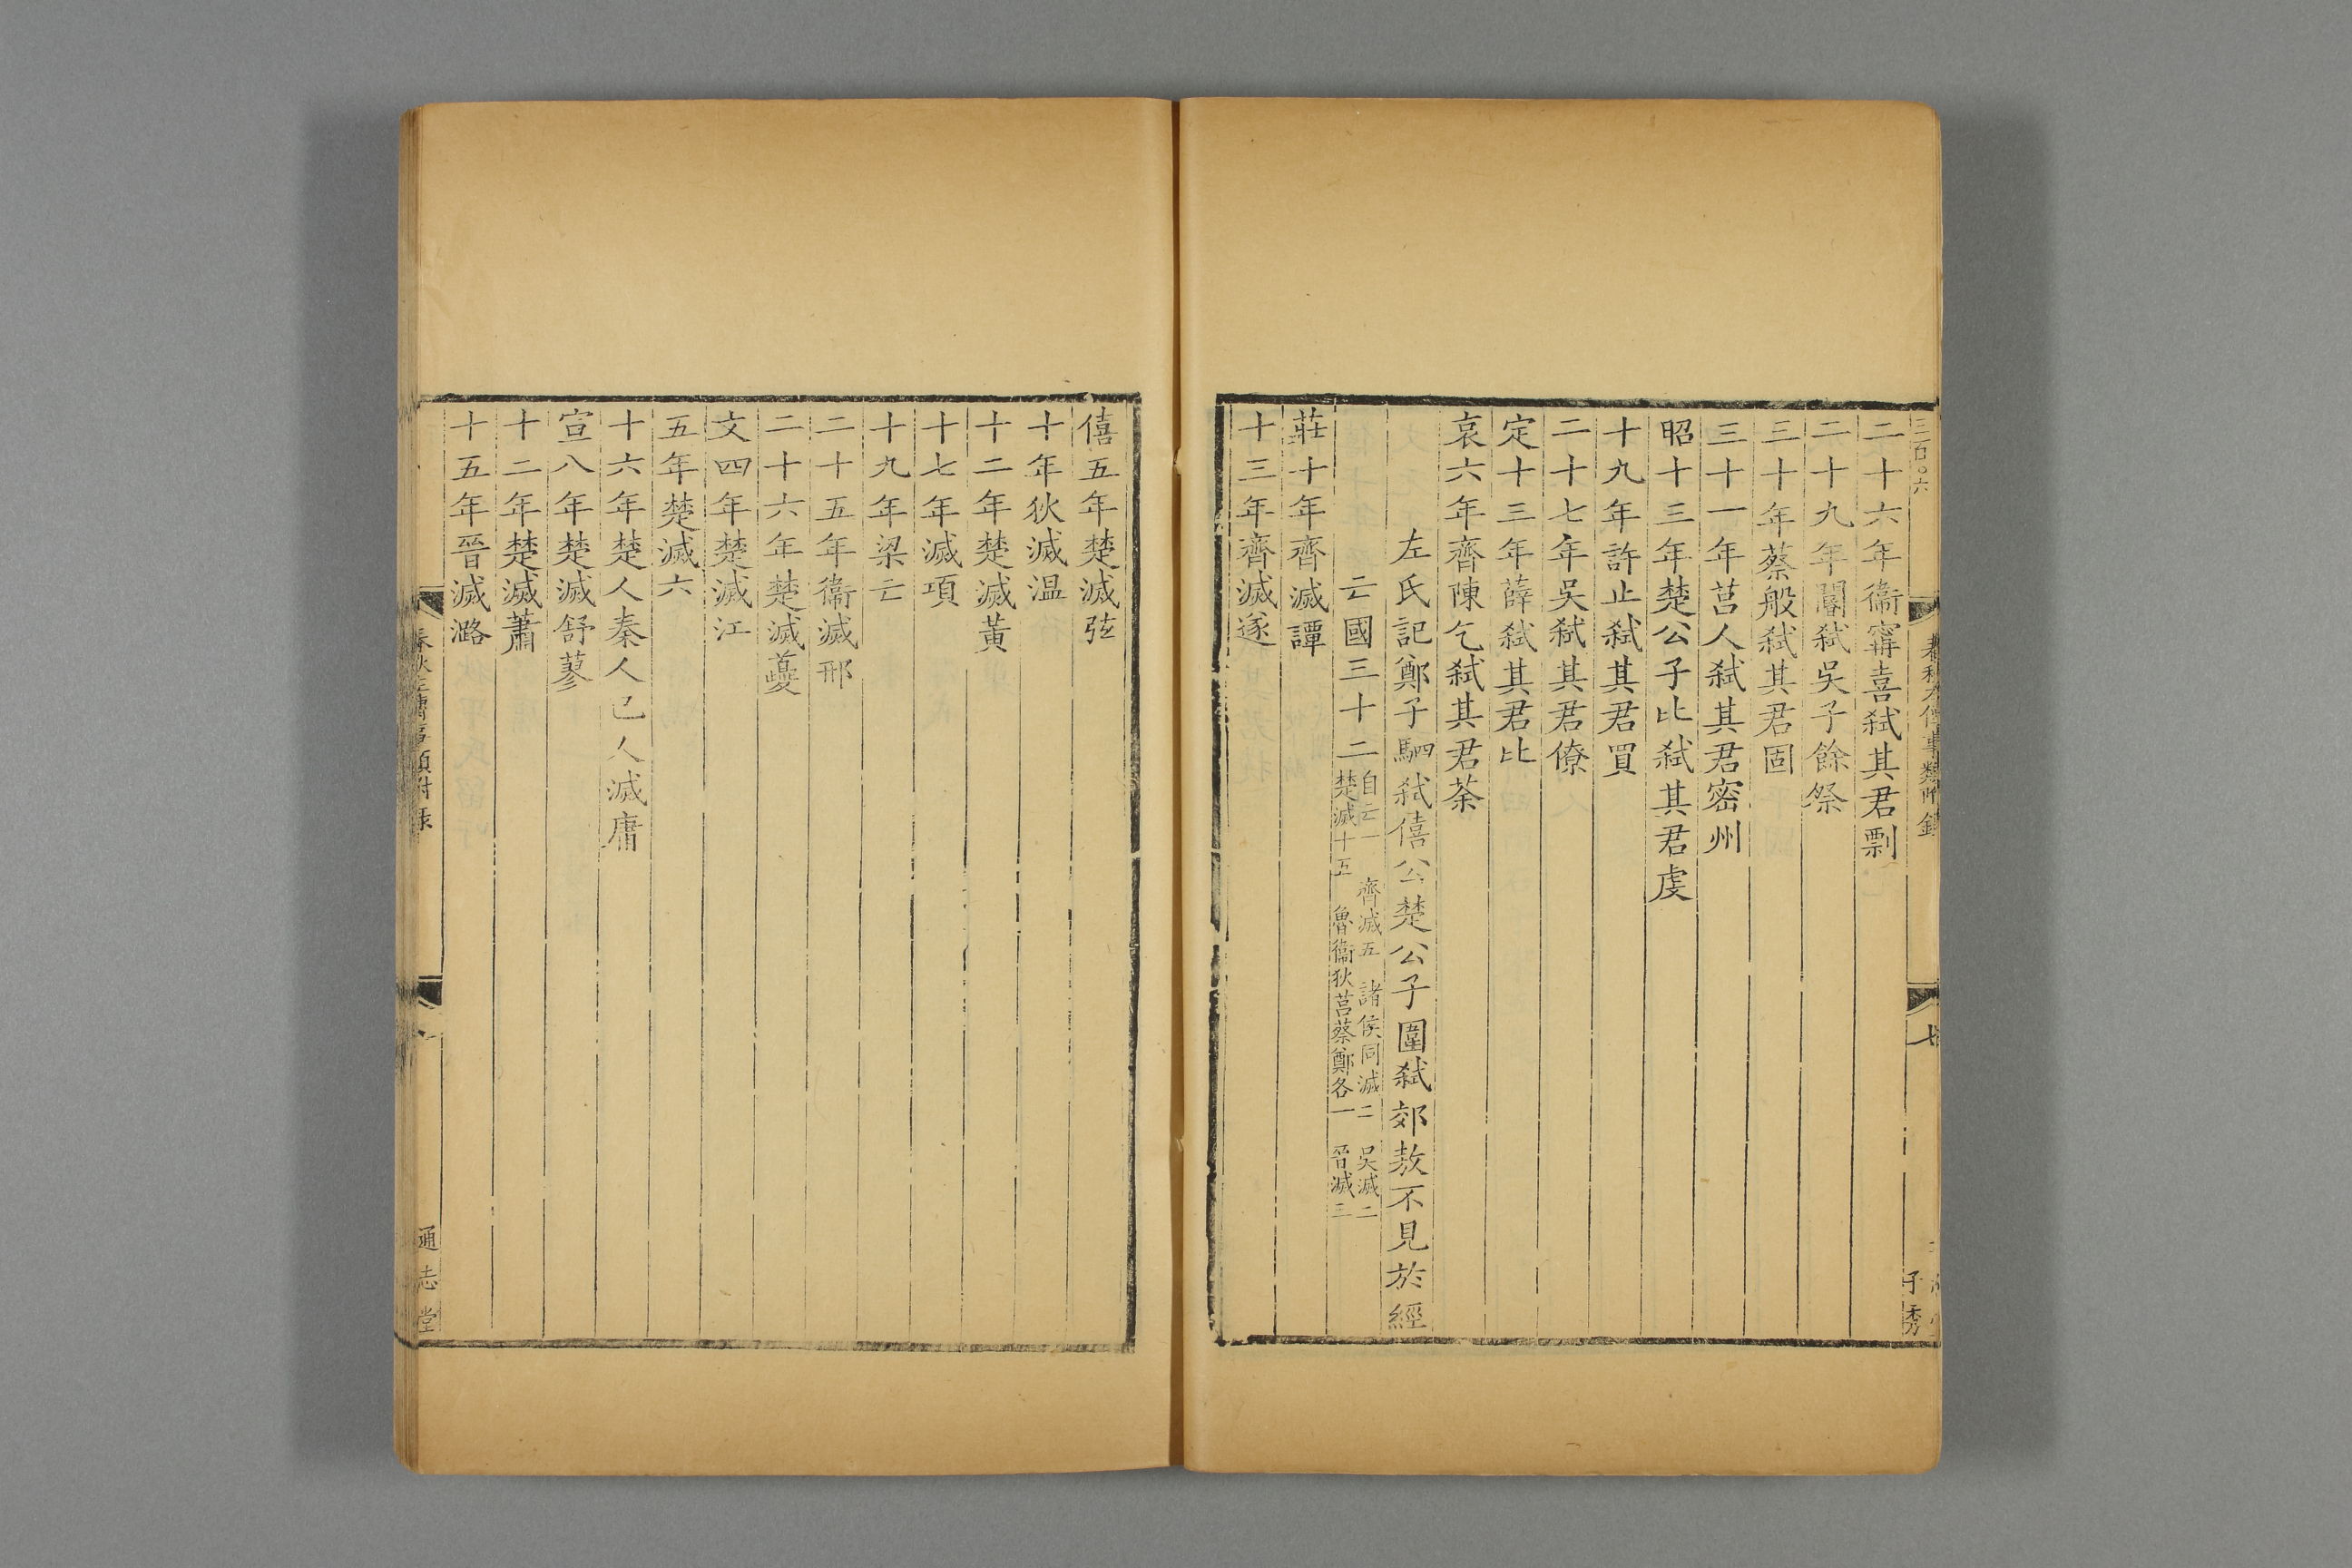 三百○六
二十六年衞甯喜弑其君剽
二十九年閽弑吳子餘祭
三十年蔡般弑其君固
三十一年莒人弑其君密州
昭十三年楚公子比弑其君虔
十九年許止弑其君買
二十七年吳弑其君僚
定十三年薛弑其君比
哀六年齊陳乞弑其君荼
左氏記鄭子駟弑僖公楚公子圍弑郟敖不見於經
亡國三十二
自亡一 齊滅五 諸侯同滅二 吳滅二
楚滅十五 魯衞狄莒蔡鄭各一 晉滅三
莊十年齊滅譚
十三年齊滅遂
子秀
僖五年楚滅弦
十年狄滅溫
十二年楚滅黃
十七年滅項
十九年梁亡
二十五年衞滅邢
二十六年楚滅夔
文四年楚滅江
五年楚滅六
十六年楚人秦人巴人滅庸
宣八年楚滅舒蓼
十二年楚滅蕭
十五年晉滅潞
通志堂